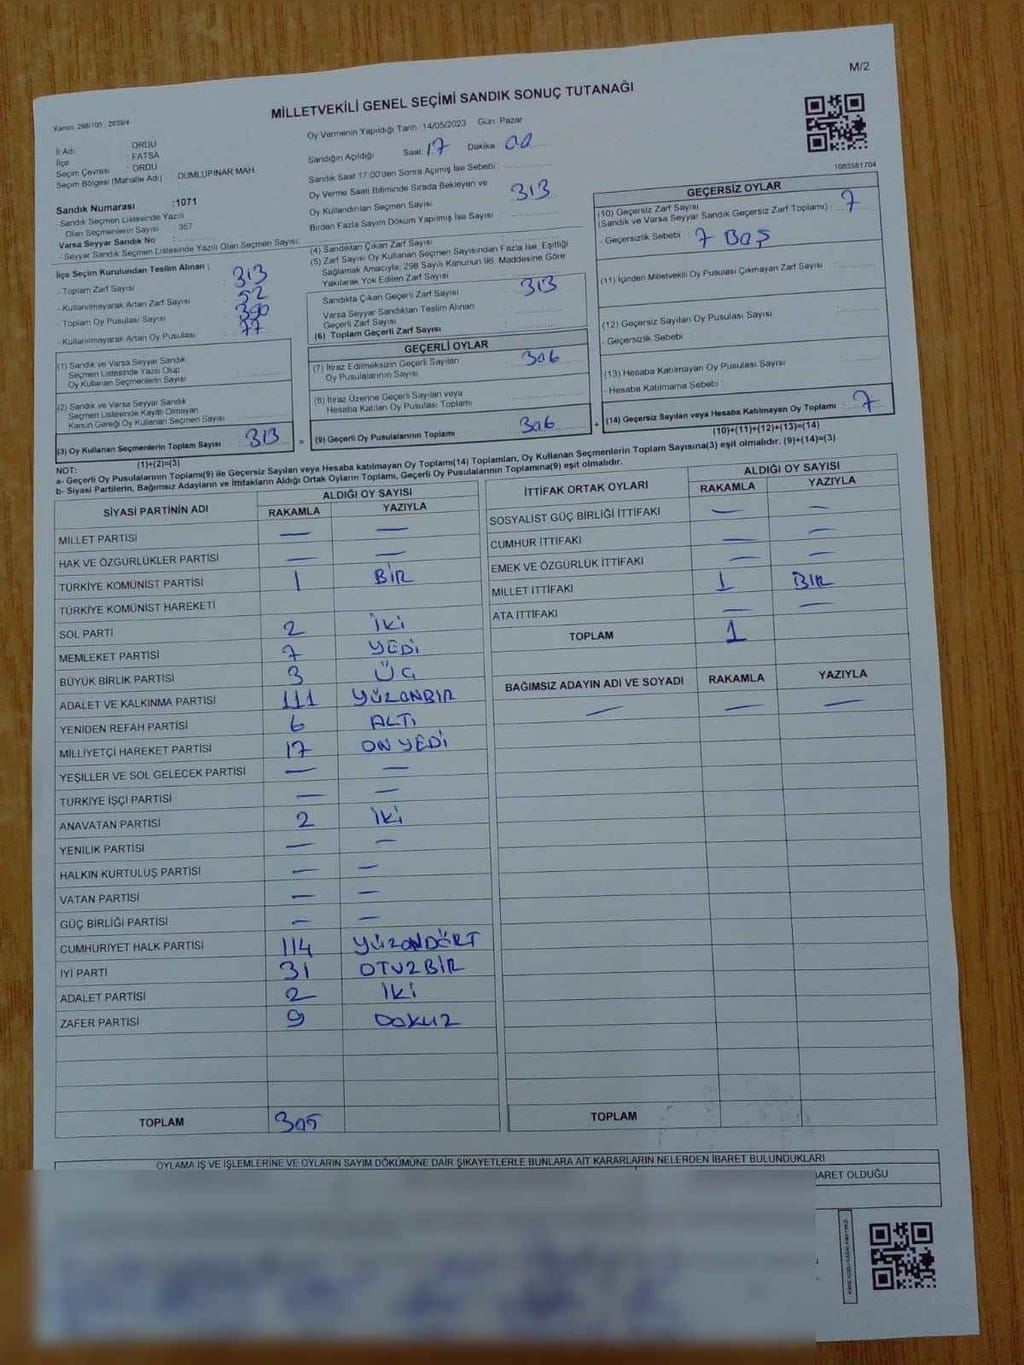 M/2
MİLLETVEKİLİ GENEL SEÇİMİ SANDIK SONUÇ TUTANAĞI
Kanun: 298/105 , 2839/4
İl Adı : ORDU
İlçe : FATSA
Seçim Çevresi : ORDU
Seçim Bölgesi (Mahalle Adı) : DUMLUPINAR MAH
Sandık Numarası :1071
- Sandık Seçmen Listesinde Yazılı
Olan Seçmenlerin Sayısı : 357
Varsa Seyyar Sandık No :
- Seyyar Sandık Seçmen Listesinde Yazılı Olan Seçmen Sayısı:
İlçe Seçim Kurulundan Teslim Alınan :
- Toplam Zarf Sayısı : 313
- Kullanılmayarak Artan Zarf Sayısı : 52
- Toplam Oy Pusulası Sayısı : 390
- Kullanılmayarak Artan Oy Pusulası : 77
(1) Sandık ve Varsa Seyyar Sandık
Seçmen Listesinde Yazılı Olup
Oy Kullanan Seçmenlerin Sayısı
(2) Sandık ve Varsa Seyyar Sandık
Seçmen Listesinde Kayıtlı Olmayan
Kanun Gereği Oy Kullanan Seçmen Sayısı
(3) Oy Kullanan Seçmenlerin Toplam Sayısı 313
(1)+(2)=(3)
Oy Vermenin Yapıldığı Tarih : 14/05/2023 Gün: Pazar
Sandığın Açıldığı Saat 17 Dakika 00
Sandık Saat 17:00'den Sonra Açılmış İse Sebebi :
Oy Verme Saati Bitiminde Sırada Bekleyen ve
Oy Kullandırılan Seçmen Sayısı : 313
Birden Fazla Sayım Döküm Yapılmış İse Sayısı :
(4) Sandıktan Çıkan Zarf Sayısı
(5) Zarf Sayısı Oy Kullanan Seçmen Sayısından Fazla İse, Eşitliği
Sağlamak Amacıyla; 298 Sayılı Kanunun 98. Maddesine Göre
Yakılarak Yok Edilen Zarf Sayısı
Sandıkta Çıkan Geçerli Zarf Sayısı : 313
Varsa Seyyar Sandıktan Teslim Alınan
Geçerli Zarf Sayısı
(6) Toplam Geçerli Zarf Sayısı
GEÇERLİ OYLAR
(7) İtiraz Edilmeksizin Geçerli Sayılan
Oy Pusulalarının Sayısı : 306
(8) İtiraz Üzerine Geçerli Sayılan veya
Hesaba Katılan Oy Pusulası Toplamı
(9) Geçerli Oy Pusulalarının Toplamı : 306
1083581704
GEÇERSİZ OYLAR
(10) Geçersiz Zarf Sayısı
(Sandık ve Varsa Seyyar Sandık Geçersiz Zarf Toplamı) : 7
- Geçersizlik Sebebi : 7 BOŞ
(11) İçinden Milletvekili Oy Pusulası Çıkmayan Zarf Sayısı
(12) Geçersiz Sayılan Oy Pusulası Sayısı :
- Geçersizlik Sebebi :
(13) Hesaba Katılmayan Oy Pusulası Sayısı
- Hesaba Katılmama Sebebi :
(14) Geçersiz Sayılan veya Hesaba Katılmayan Oy Toplamı : 7
(10)+(11)+(12)+(13)=(14)
NOT:
a- Geçerli Oy Pusulalarının Toplamı(9) ile Geçersiz Sayılan veya Hesaba katılmayan Oy Toplamı(14) Toplamları, Oy Kullanan Seçmenlerin Toplam Sayısına(3) eşit olmalıdır. (9)+(14)=(3)
b- Siyasi Partilerin, Bağımsız Adayların ve İttifakların Aldığı Ortak Oyların Toplamı, Geçerli Oy Pusulalarının Toplamına(9) eşit olmalıdır.
SİYASİ PARTİNİN ADI ALDIĞI OY SAYISI
RAKAMLA YAZIYLA
MİLLET PARTİSİ — —
HAK VE ÖZGÜRLÜKLER PARTİSİ — —
TÜRKİYE KOMÜNİST PARTİSİ 1 BİR
TÜRKİYE KOMÜNİST HAREKETİ
SOL PARTİ 2 İKİ
MEMLEKET PARTİSİ 7 YEDİ
BÜYÜK BİRLİK PARTİSİ 3 ÜÇ
ADALET VE KALKINMA PARTİSİ 111 YÜZONBİR
YENİDEN REFAH PARTİSİ 6 ALTI
MİLLİYETÇİ HAREKET PARTİSİ 17 ON YEDİ
YEŞİLLER VE SOL GELECEK PARTİSİ — —
TÜRKİYE İŞÇİ PARTİSİ — —
ANAVATAN PARTİSİ 2 İKİ
YENİLİK PARTİSİ — —
HALKIN KURTULUŞ PARTİSİ — —
VATAN PARTİSİ — —
GÜÇ BİRLİĞİ PARTİSİ — —
CUMHURİYET HALK PARTİSİ 114 YÜZONDÖRT
İYİ PARTİ 31 OTUZBİR
ADALET PARTİSİ 2 İKİ
ZAFER PARTİSİ 9 DOKUZ
TOPLAM 305
İTTİFAK ORTAK OYLARI ALDIĞI OY SAYISI
RAKAMLA YAZIYLA
SOSYALİST GÜÇ BİRLİĞİ İTTİFAKI — —
CUMHUR İTTİFAKI — —
EMEK VE ÖZGÜRLÜK İTTİFAKI — —
MİLLET İTTİFAKI 1 BİR
ATA İTTİFAKI — —
TOPLAM 1
BAĞIMSIZ ADAYIN ADI VE SOYADI RAKAMLA YAZIYLA
— — —
TOPLAM
OYLAMA İŞ VE İŞLEMLERİNE VE OYLARIN SAYIM DÖKÜMÜNE DAİR ŞİKAYETLERLE BUNLARA AİT KARARLARIN NELERDEN İBARET BULUNDUKLARI
BARET OLDUĞU